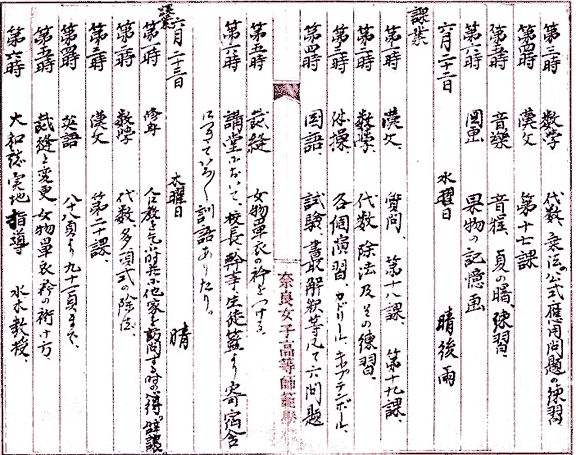 第三時 数学 代数、乗法公式應用問題の練習
第四時 漢文 第十七課
第五時 音楽 音程、夏の曙、練習、
第六時 圖画 果物の記憶画
六月二十二日 水曜日 晴後雨
課業
第一時 漢文、質問、第十八課、第十九課、
第二時 数学、代数、除法及その練習、
第三時 体操、各個演習、カドリール、キャプテンボール、
第四時 国語、試験、解釈等凡て六問題
奈良女子高等師範學校
第五時 裁縫 女物單衣衿をつける、
第六時 講堂において、校長、幹事、生徒監より寄宿舎
訓話ありたり。
六月二十三日 木曜日 晴
課業
第一時 修身 他家を訪問する時の
第二時 数学 代数多項式の除法、
第三時 漢文 第二十課、
第四時 英語 八十八頁より九十一頁まで、
第五時 裁縫と変更 女物單衣衿の付け方、
第六時 大和 実地指導 水木教授